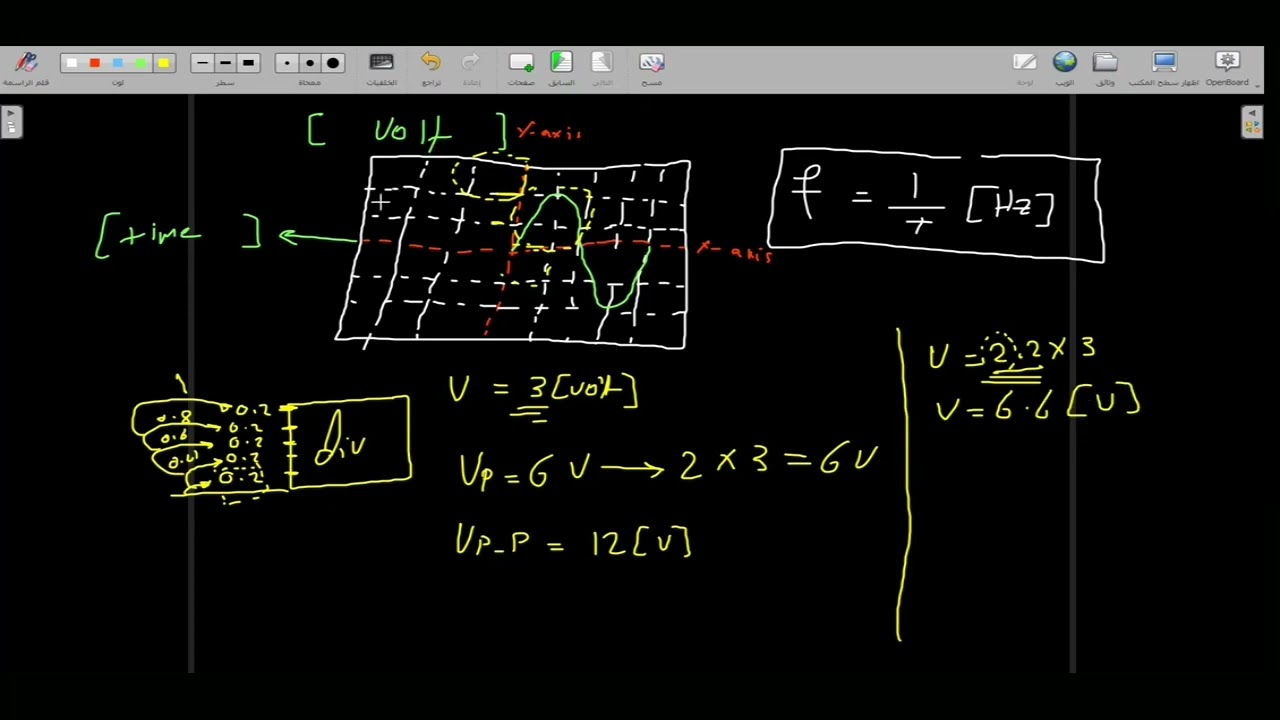 قلم الراسمة
لون
سطر
ممحاة
الخلفيات
تراجع
إعادة
صفحات
السابق
التالي
مسح
لوحة
الويب
وثائق
اظهار سطح المكتب
OpenBoard
[ volt ]
Y-axis
[time ]
X-axis
f = 1/T [Hz]
V = 3 [volt]
Vp = 6 V → 2 × 3 = 6 V
Vp-p = 12 [V]
1
0.8
0.6
0.4
0.2
0.2
0.2
0.2
0.2
div
V = 2.2 × 3
V = 6.6 [V]